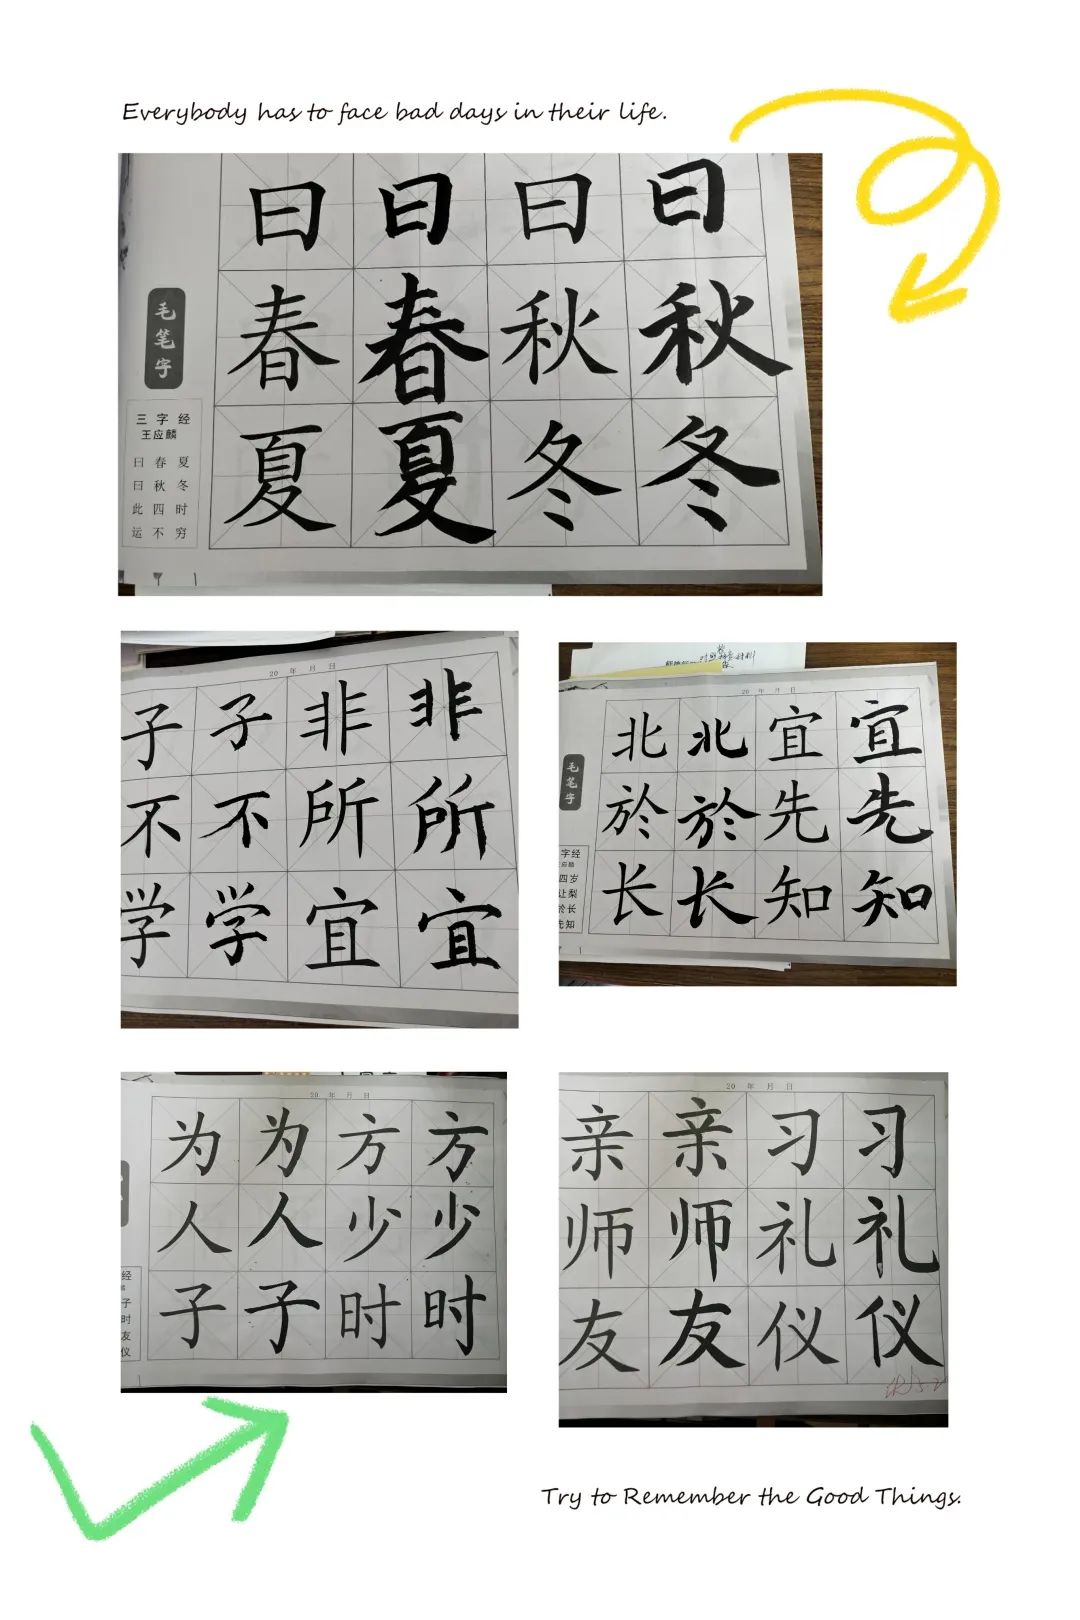 Everybody has to face bad days in their life.
曰 曰 曰 曰
春 春 秋 秋
夏 夏 冬 冬
毛笔字
三字经
王应麟
曰春夏
曰秋冬
此四时
运不穷
20 年 月 日
子 子 非 非
不 不 所 所
学 学 宜 宜
20 年 月 日
北 北 宜 宜
於 於 先 先
长 长 知 知
毛笔字
字经
四岁
让梨
於长
先知
20 年 月 日
为 为 方 方
人 人 少 少
子 子 时 时
经
子
时
友
仪
20 年 月 日
亲 亲 习 习
师 师 礼 礼
友 友 仪 仪
Try to Remember the Good Things.